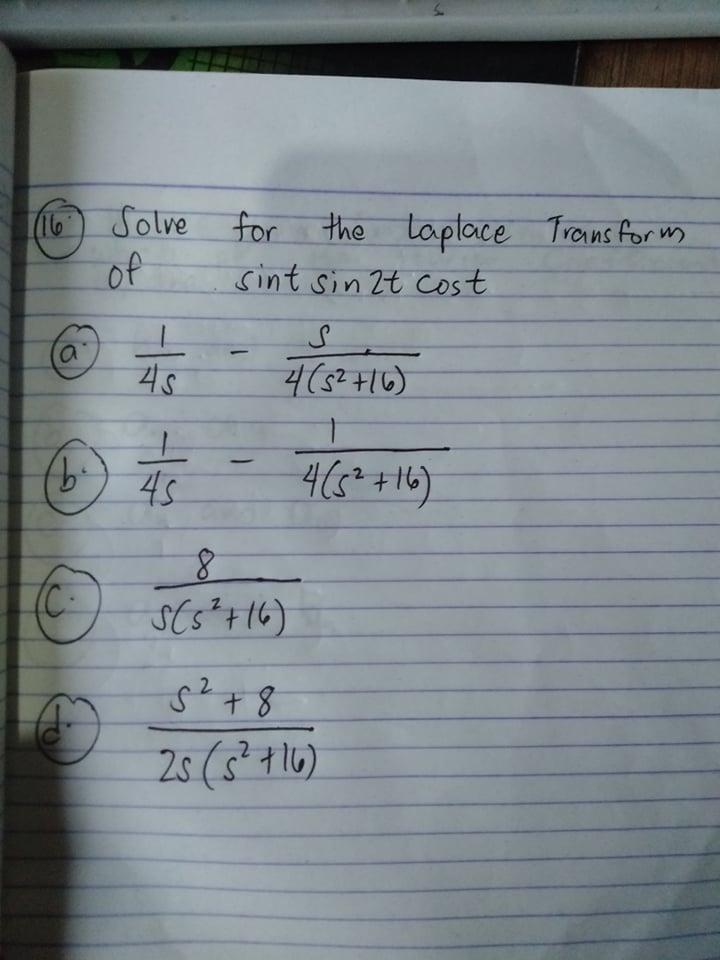 16. Solve for the Laplace Transform
of sint sin 2t cost
a. 1/4s - s/4(s²+16)
b. 1/4s - 1/4(s²+16)
c. 8/s(s²+16)
d. s²+8/2s(s²+16)